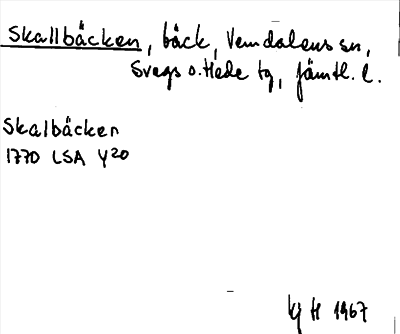 Skallbäcken, bäck, Vemdalens sn,
Svegs o. Hede tg, Jämtl. l.
Skalbäcken
1770 LSA Y20
KJ H 1967